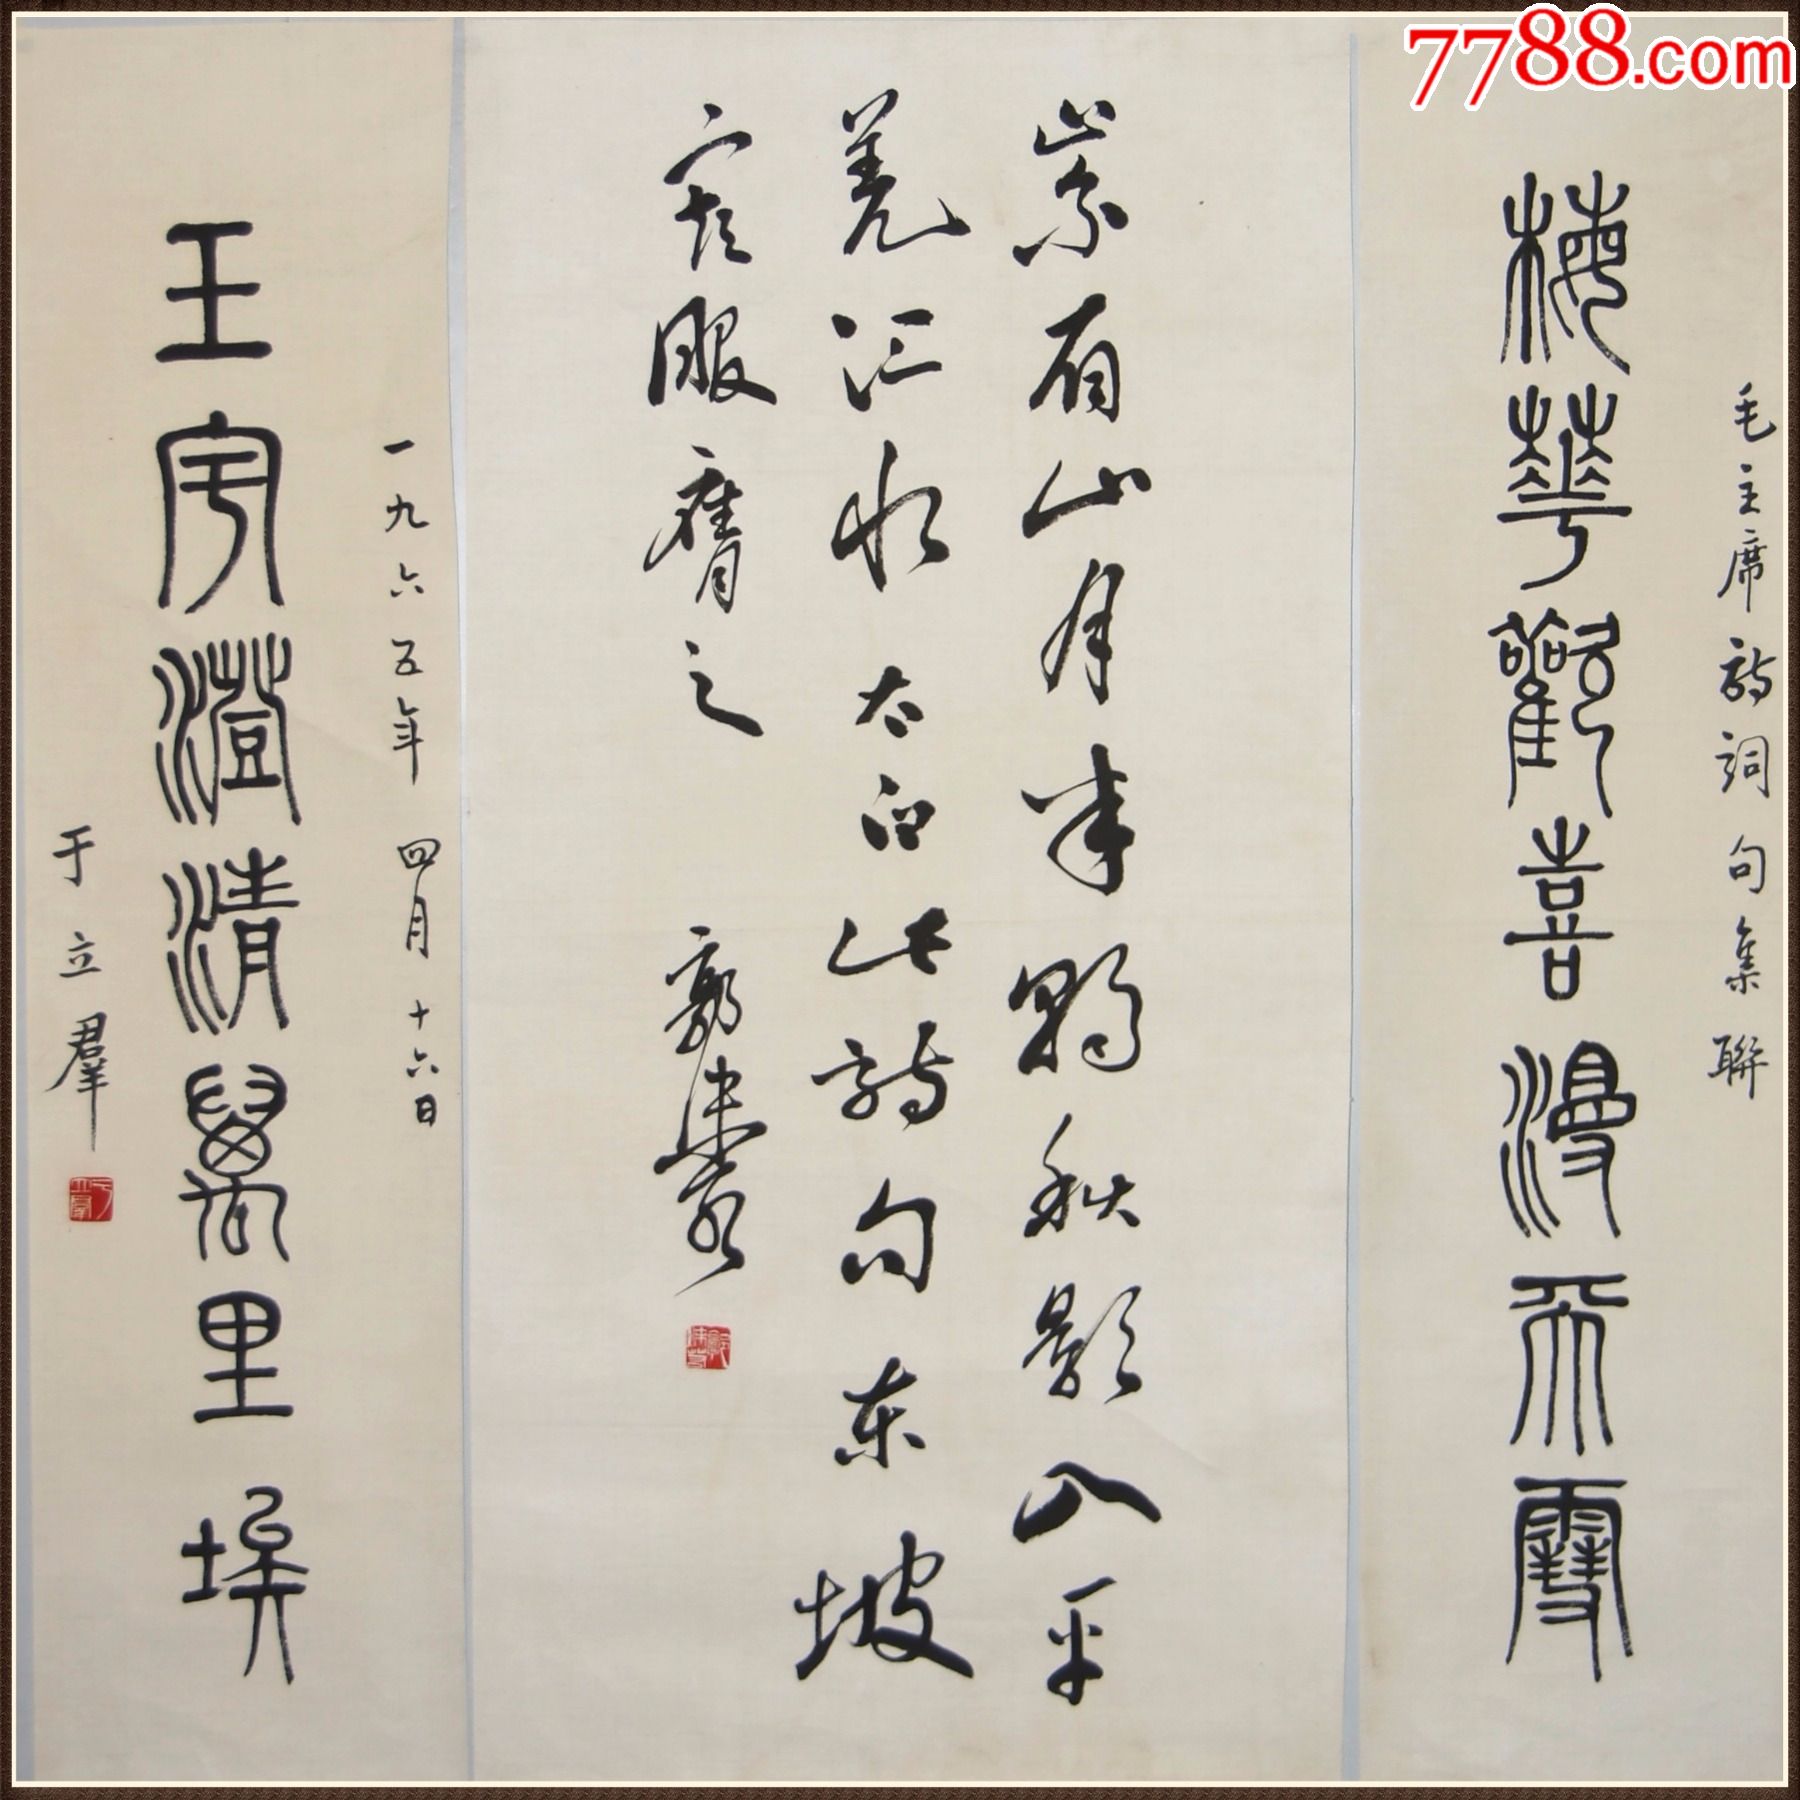 7788.com
毛主席詩詞句集聯
梅華歡喜漫天雪
峩眉山月半輪秋影入平
羌江水太白此詩句東坡
最服膺之 郭沫若
一九六五年四月十六日
玉宇澄清萬里埃
于立羣